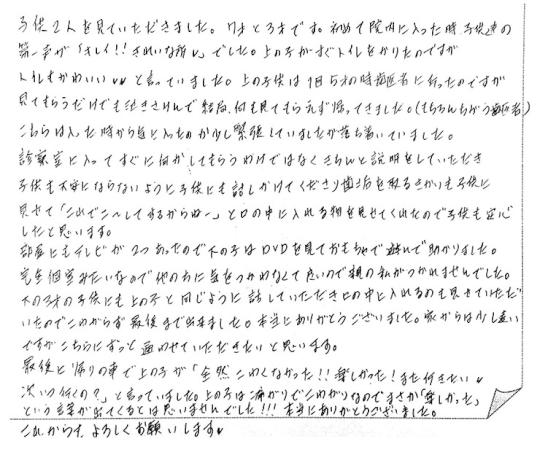 子供2人を見ていただきました。7才と3才です。初めて院内に入った時、子供達の
第一声が「キレイ!!きれいな所♡」でした。上の子がすぐトイレをかりたのですが
トイレもかわいい♡♡と言っていました。上の子供は1回5才の時歯医者に行ったのですが
見てもらうだけでも泣きさけんで結局、何も見てもらえず帰ってきました。(もちろんちがう歯医者)
こちらは入った時から気に入ったのか少し緊張していましたが落ち着いていました。
診察室に入ってすぐに何かしてもらうわけではなくきちんと説明をしていただき
子供も不安にならないように子供にも話しかけてくださり歯治を取るきかいも子供に
見せて「これでこ〜してするからね〜」と口の中に入れる物を見せてくれたので子供も安心
したと思います。
部屋にもテレビが2つあったので下の子はDVDを見ておもちゃで遊んで助かりました。
完全個室みたいなので他の方に気をつかわなくて良いので親の私がつかれませんでした。
下の3才の子供にも上の子と同じように話していただき口の中に入れるのも見せていただ
いたのでこわがらず最後まで出来ました。本当にありがとうございました。家からは少し遠い
ですがこちらにずっと通わせていただきたいと思います。
最後に帰りの車で上の子が「全然こわくなかった!!楽しかった!また行きたい♡
次いつ行くの?」と言っていました。上の子は痛がりでこわがりなのでまさか「楽しかった」
という言葉が出てくるとは思いませんでした!!!本当にありがとうございました。
これからも、よろしくお願いします♡